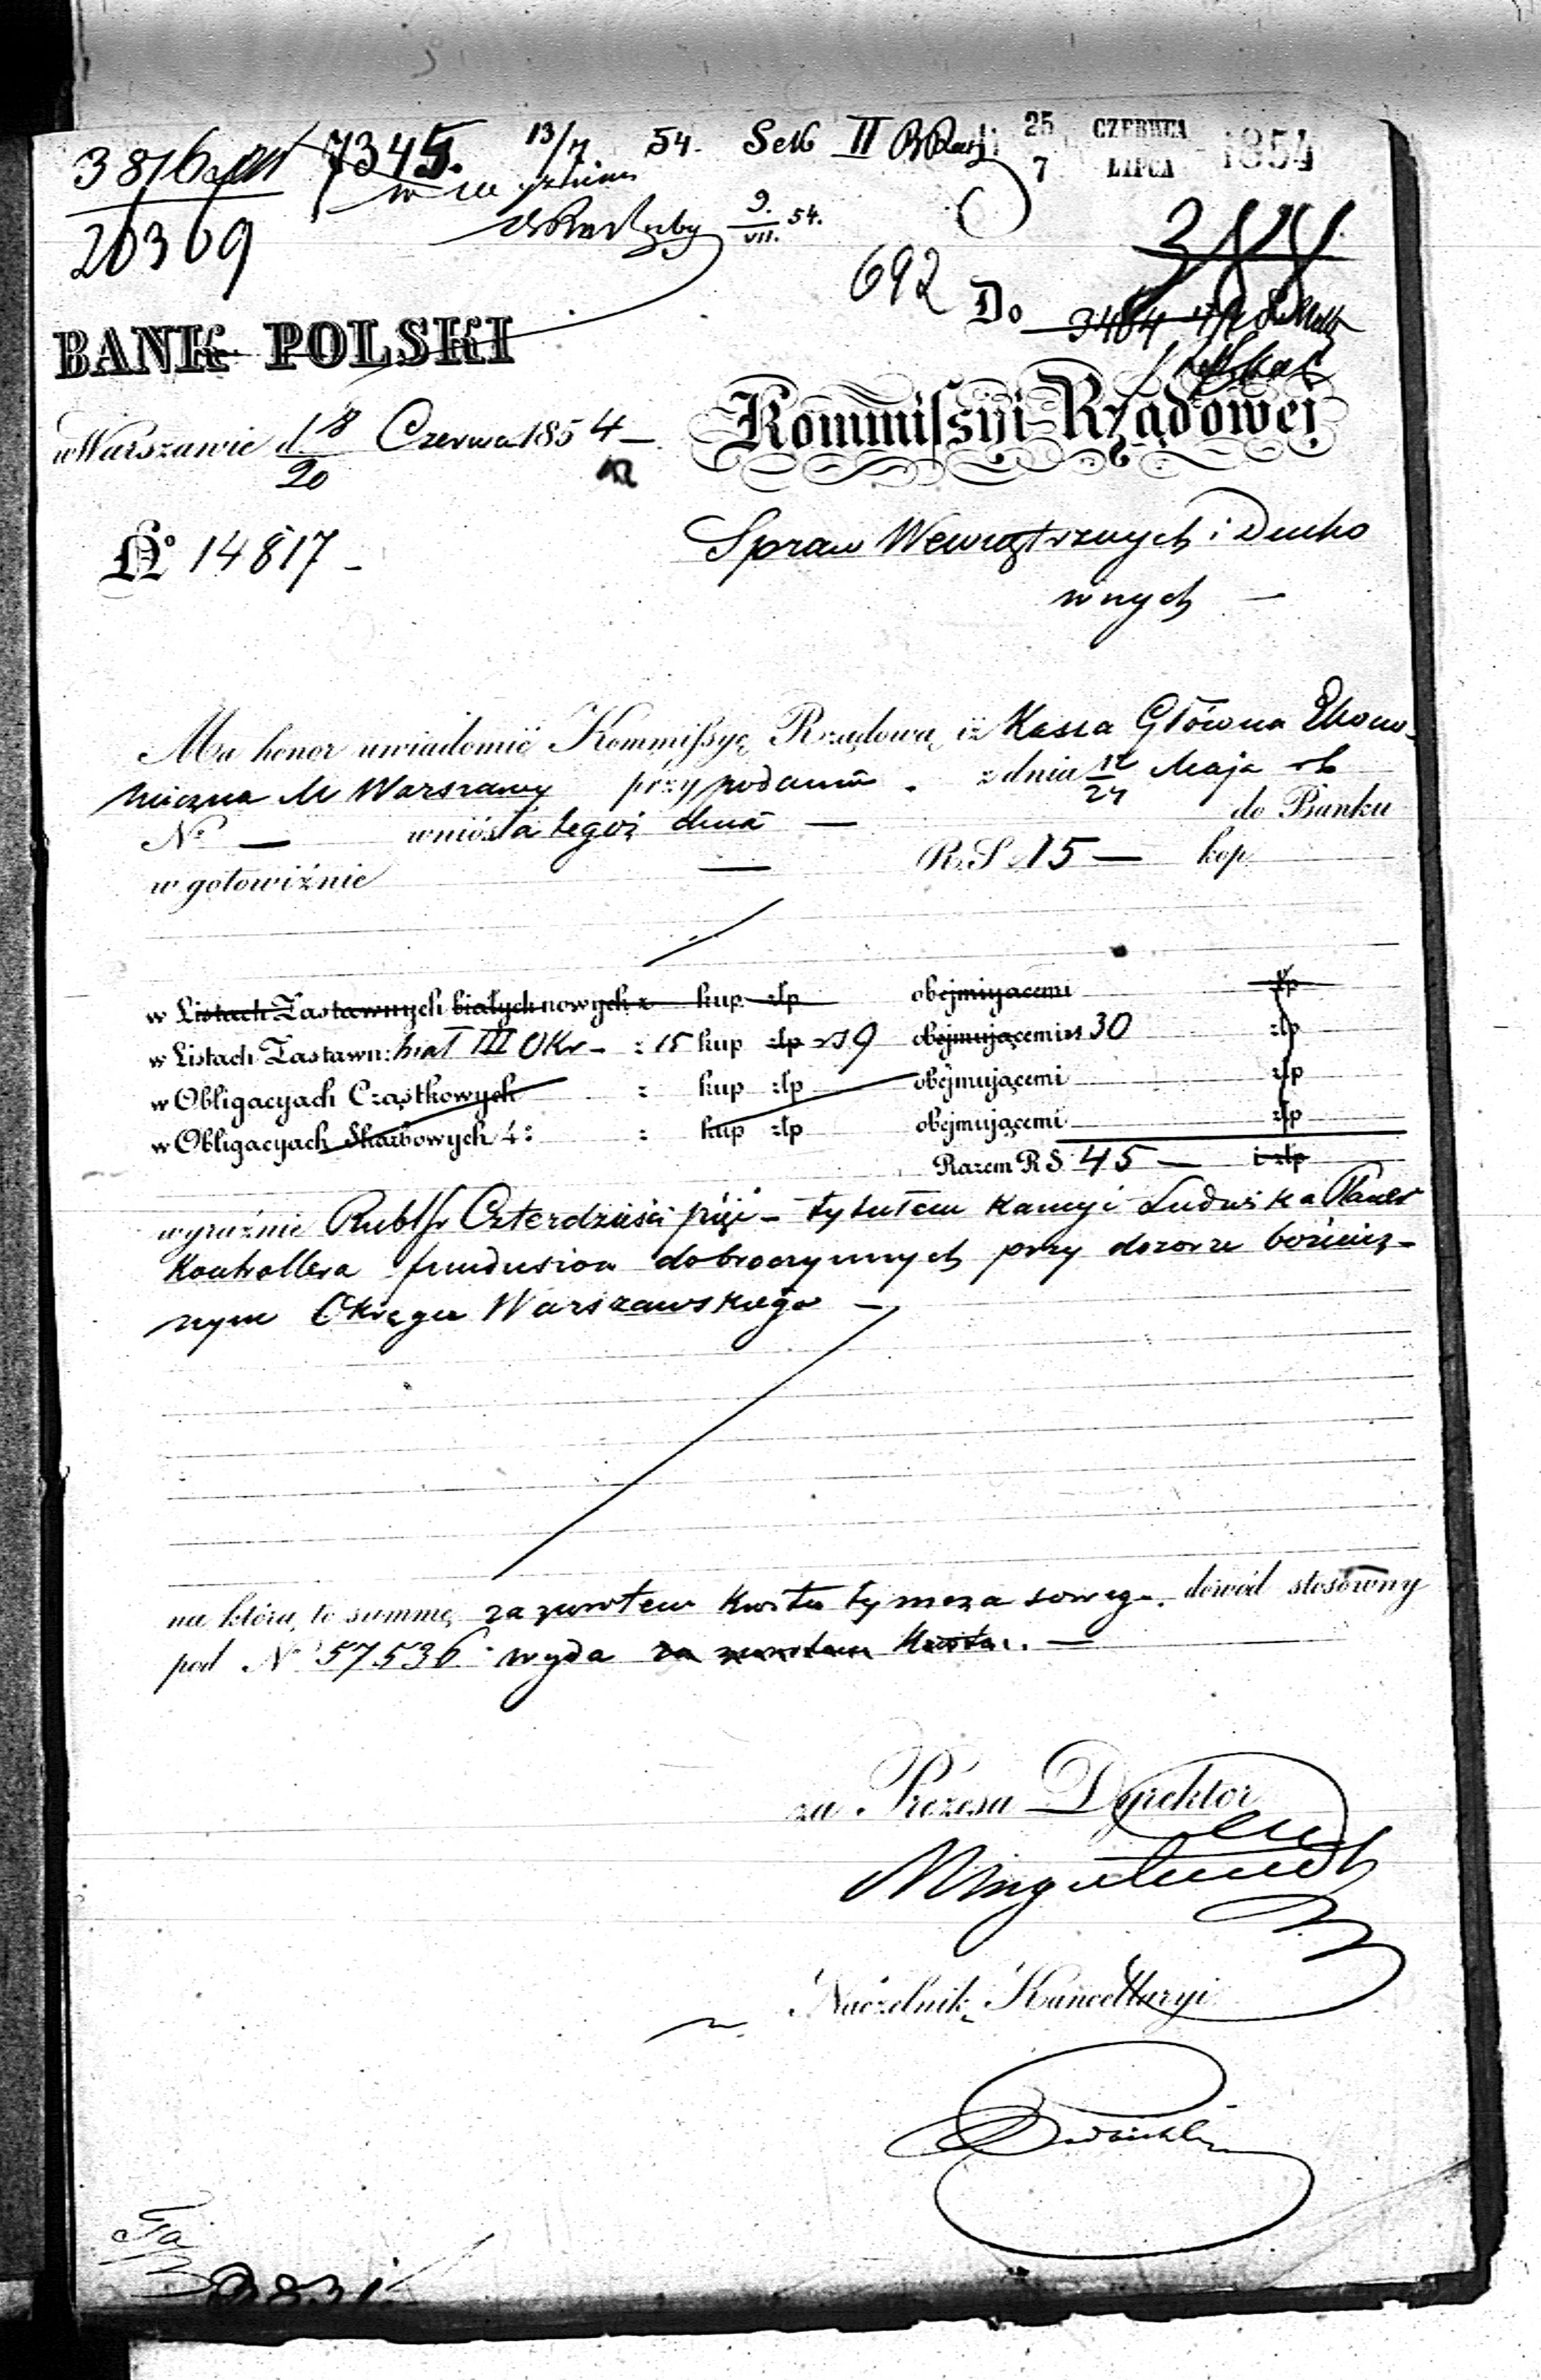 3876
20369
7345. 13/7 54. Sek II
25 CZERWCA 1854
7 LIPCA
9. VII. 54.
692 Do
BANK POLSKI
Kommissyi Rządowej
w Warszawie d. 18/20 Czerwca 1854 —
No 14817 —
Spraw Wewnętrznych i Ducho
wnych —
Ma honor uwiadomić Kommissyę Rządową iż Kassa Główna Ekono-
miczna M Warszawy przy podaniu z dnia 12/24 Maja rb
No — wniosła tegoż dnia — do Banku
w gotowiźnie — R.S. 15 — kop
w Listach Zastawnych białych nowych z kup. złp obejmującemi złp
w Listach Zastawn: biał III Okr — z 15 kup złp 9 obejmującemi rs 30 złp
w Obligacyach Cząstkowych z kup złp obejmującemi złp
w Obligacyach Skarbowych 4: z kup złp obejmującemi złp
Razem R S. 45 — i złp
wyraźnie Rubl sr Czterdzieści pięć — tytułem Kaucyi Ludwika
Kontrollera funduszow dobroczynnych przy dozorze bóżnicz-
nym Okręgu Warszawskiego —
na którą to summę za zwrotem Kwitu tymczasowego. dowód stosowny
pod No 57536 wyda za zwrotem Kwitu. —
za Prezesa Dyrektor
Naczelnik Kancellaryi